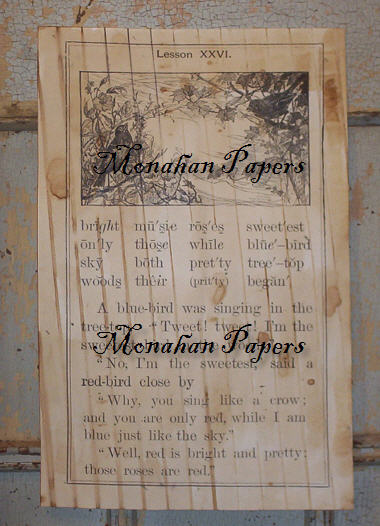 Lesson XXVI.
Monahan Papers
bright mū'sic rōs'es sweet'est
ōn'ly thōse while blūe'-bird
skȳ bōth pret'ty tree'-tŏp
woods thêir (prit'ty) begăn'
A blue-bird was singing in the
tree-top. "Tweet! tweet! I'm the
Monahan Papers
"No, I'm the sweetest," said a
red-bird close by
"Why, you sing like a crow;
and you are only red, while I am
blue just like the sky."
"Well, red is bright and pretty;
those roses are red."